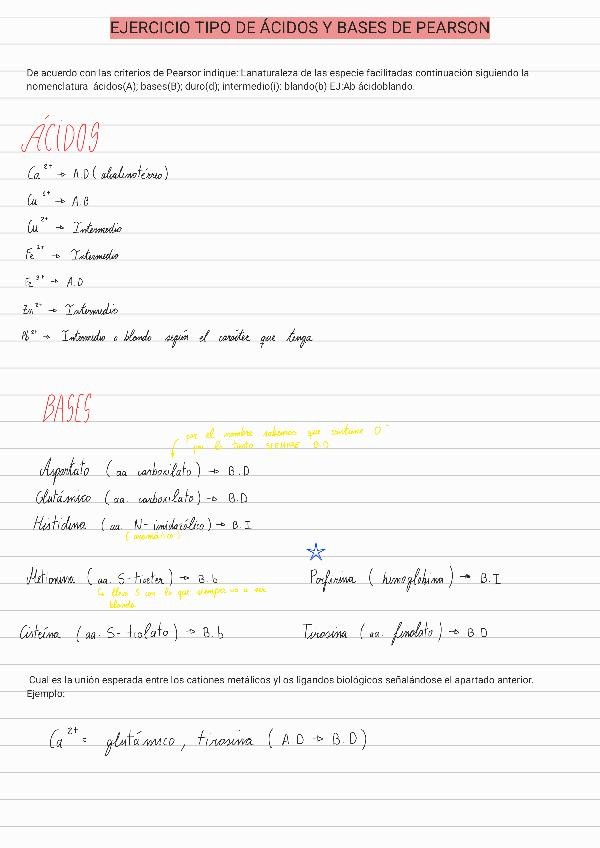 EJERCICIO TIPO DE ÁCIDOS Y BASES DE PEARSON
De acuerdo con las criterios de Pearsor indique: Lanaturaleza de las especie facilitadas continuación siguiendo la
nomenclatura ácidos(A); bases(B); duro(d); intermedio(i): blando(b) EJ:Ab ácidoblando.
ÁCIDOS
Ca²⁺ → A.D (alcalinotérreo)
Cu → A.B
Cu²⁺ → Intermedio
Fe²⁺ → Intermedio
Fe³⁺ → A.D
Zn²⁺ → Intermedio
Pb²⁺ → Intermedio o blando según el carácter que tenga
BASES
por el nombre sabemos que contiene O⁻
por lo tanto SIEMPRE B.D
Aspartato (aa carboxilato) → B.D
Glutámico (aa. carboxilato) → B.D
Histidina (aa. N-imidazólico) → B.I
(aromático)
Metionina (aa. S-tioeter) → B.b
lleva S con lo que siempre va a ser
blanda
Porfirina (hemoglobina) → B.I
Cisteína (aa. S-tiolato) → B.b
Tirosina (aa. fenolato) → B.D
Cual es la unión esperada entre los cationes metálicos yl os ligandos biológicos señalándose el apartado anterior.
Ejemplo:
Ca²⁺ = glutámico, tirosina (A.D → B.D)